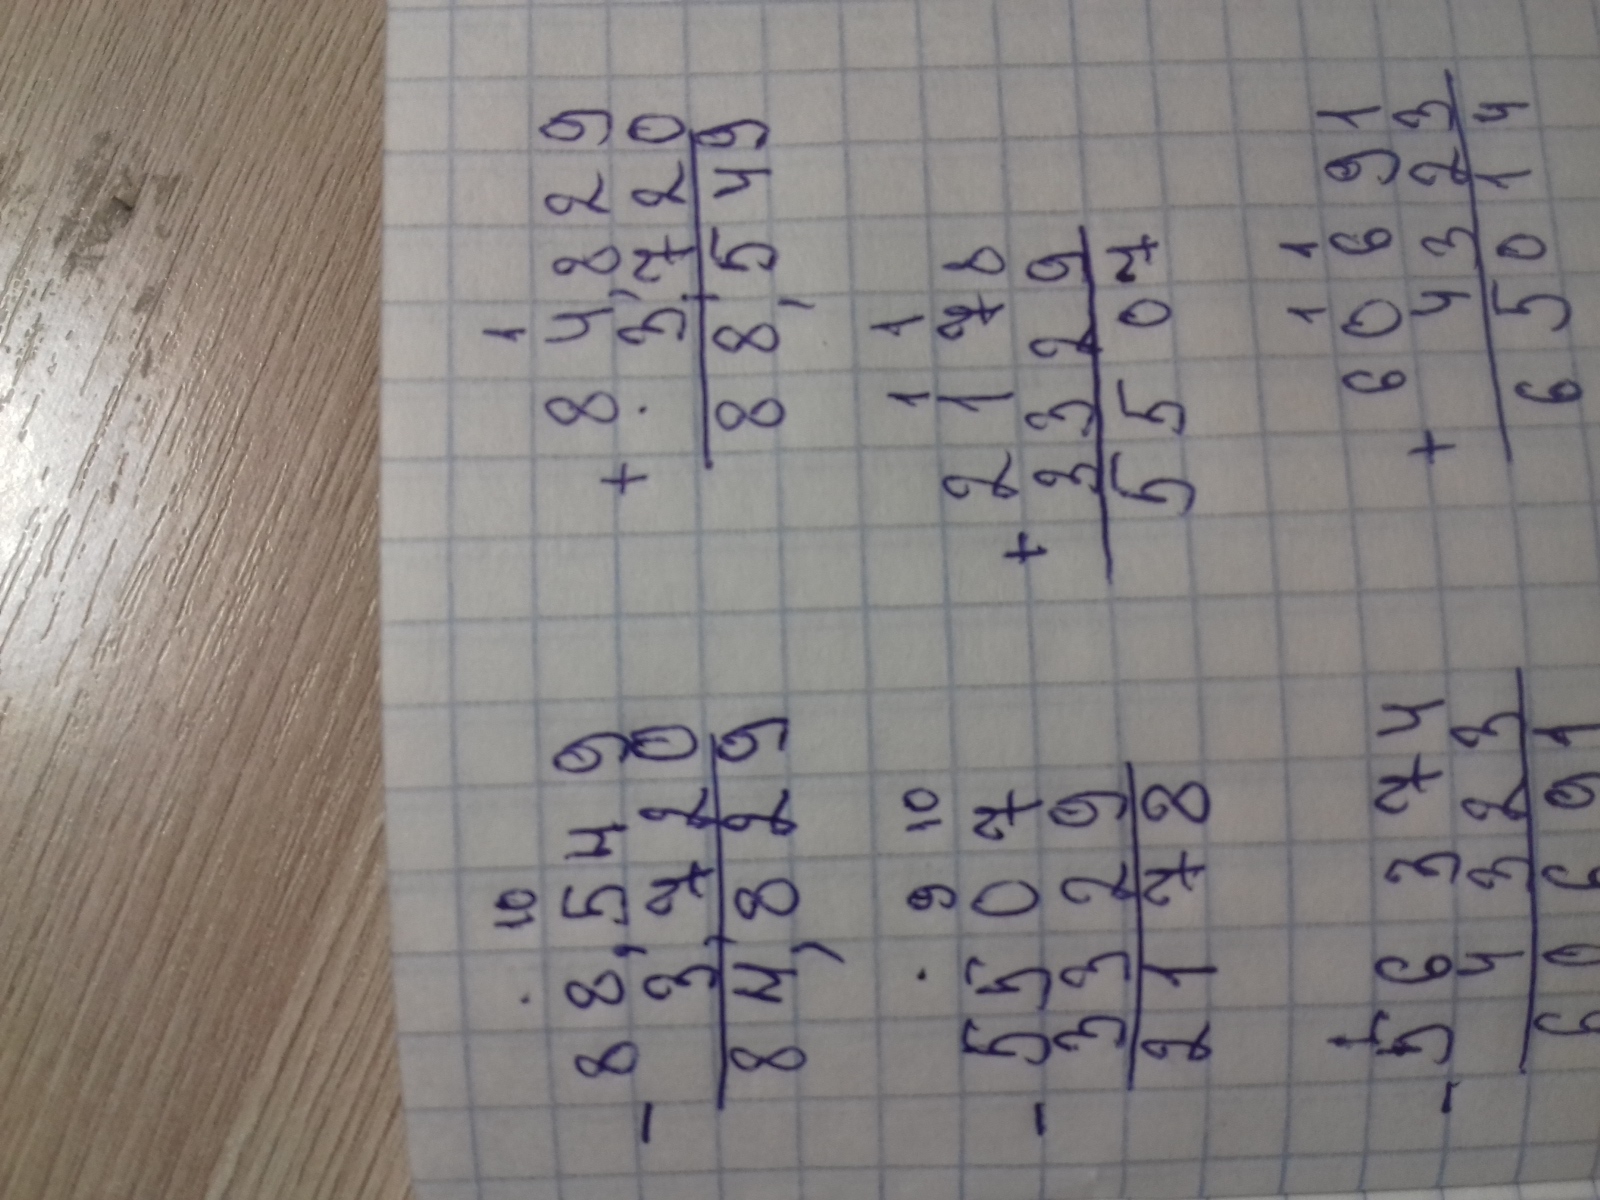 . 10
88,549
- 3,720
84,829
1
84,829
+ . 3,720
88,549
. 9 10
5507
- 3329
2178
1 1
2178
+ 3329
5507
56374
- 4323
60691
1 1
60691
+ 4323
65014